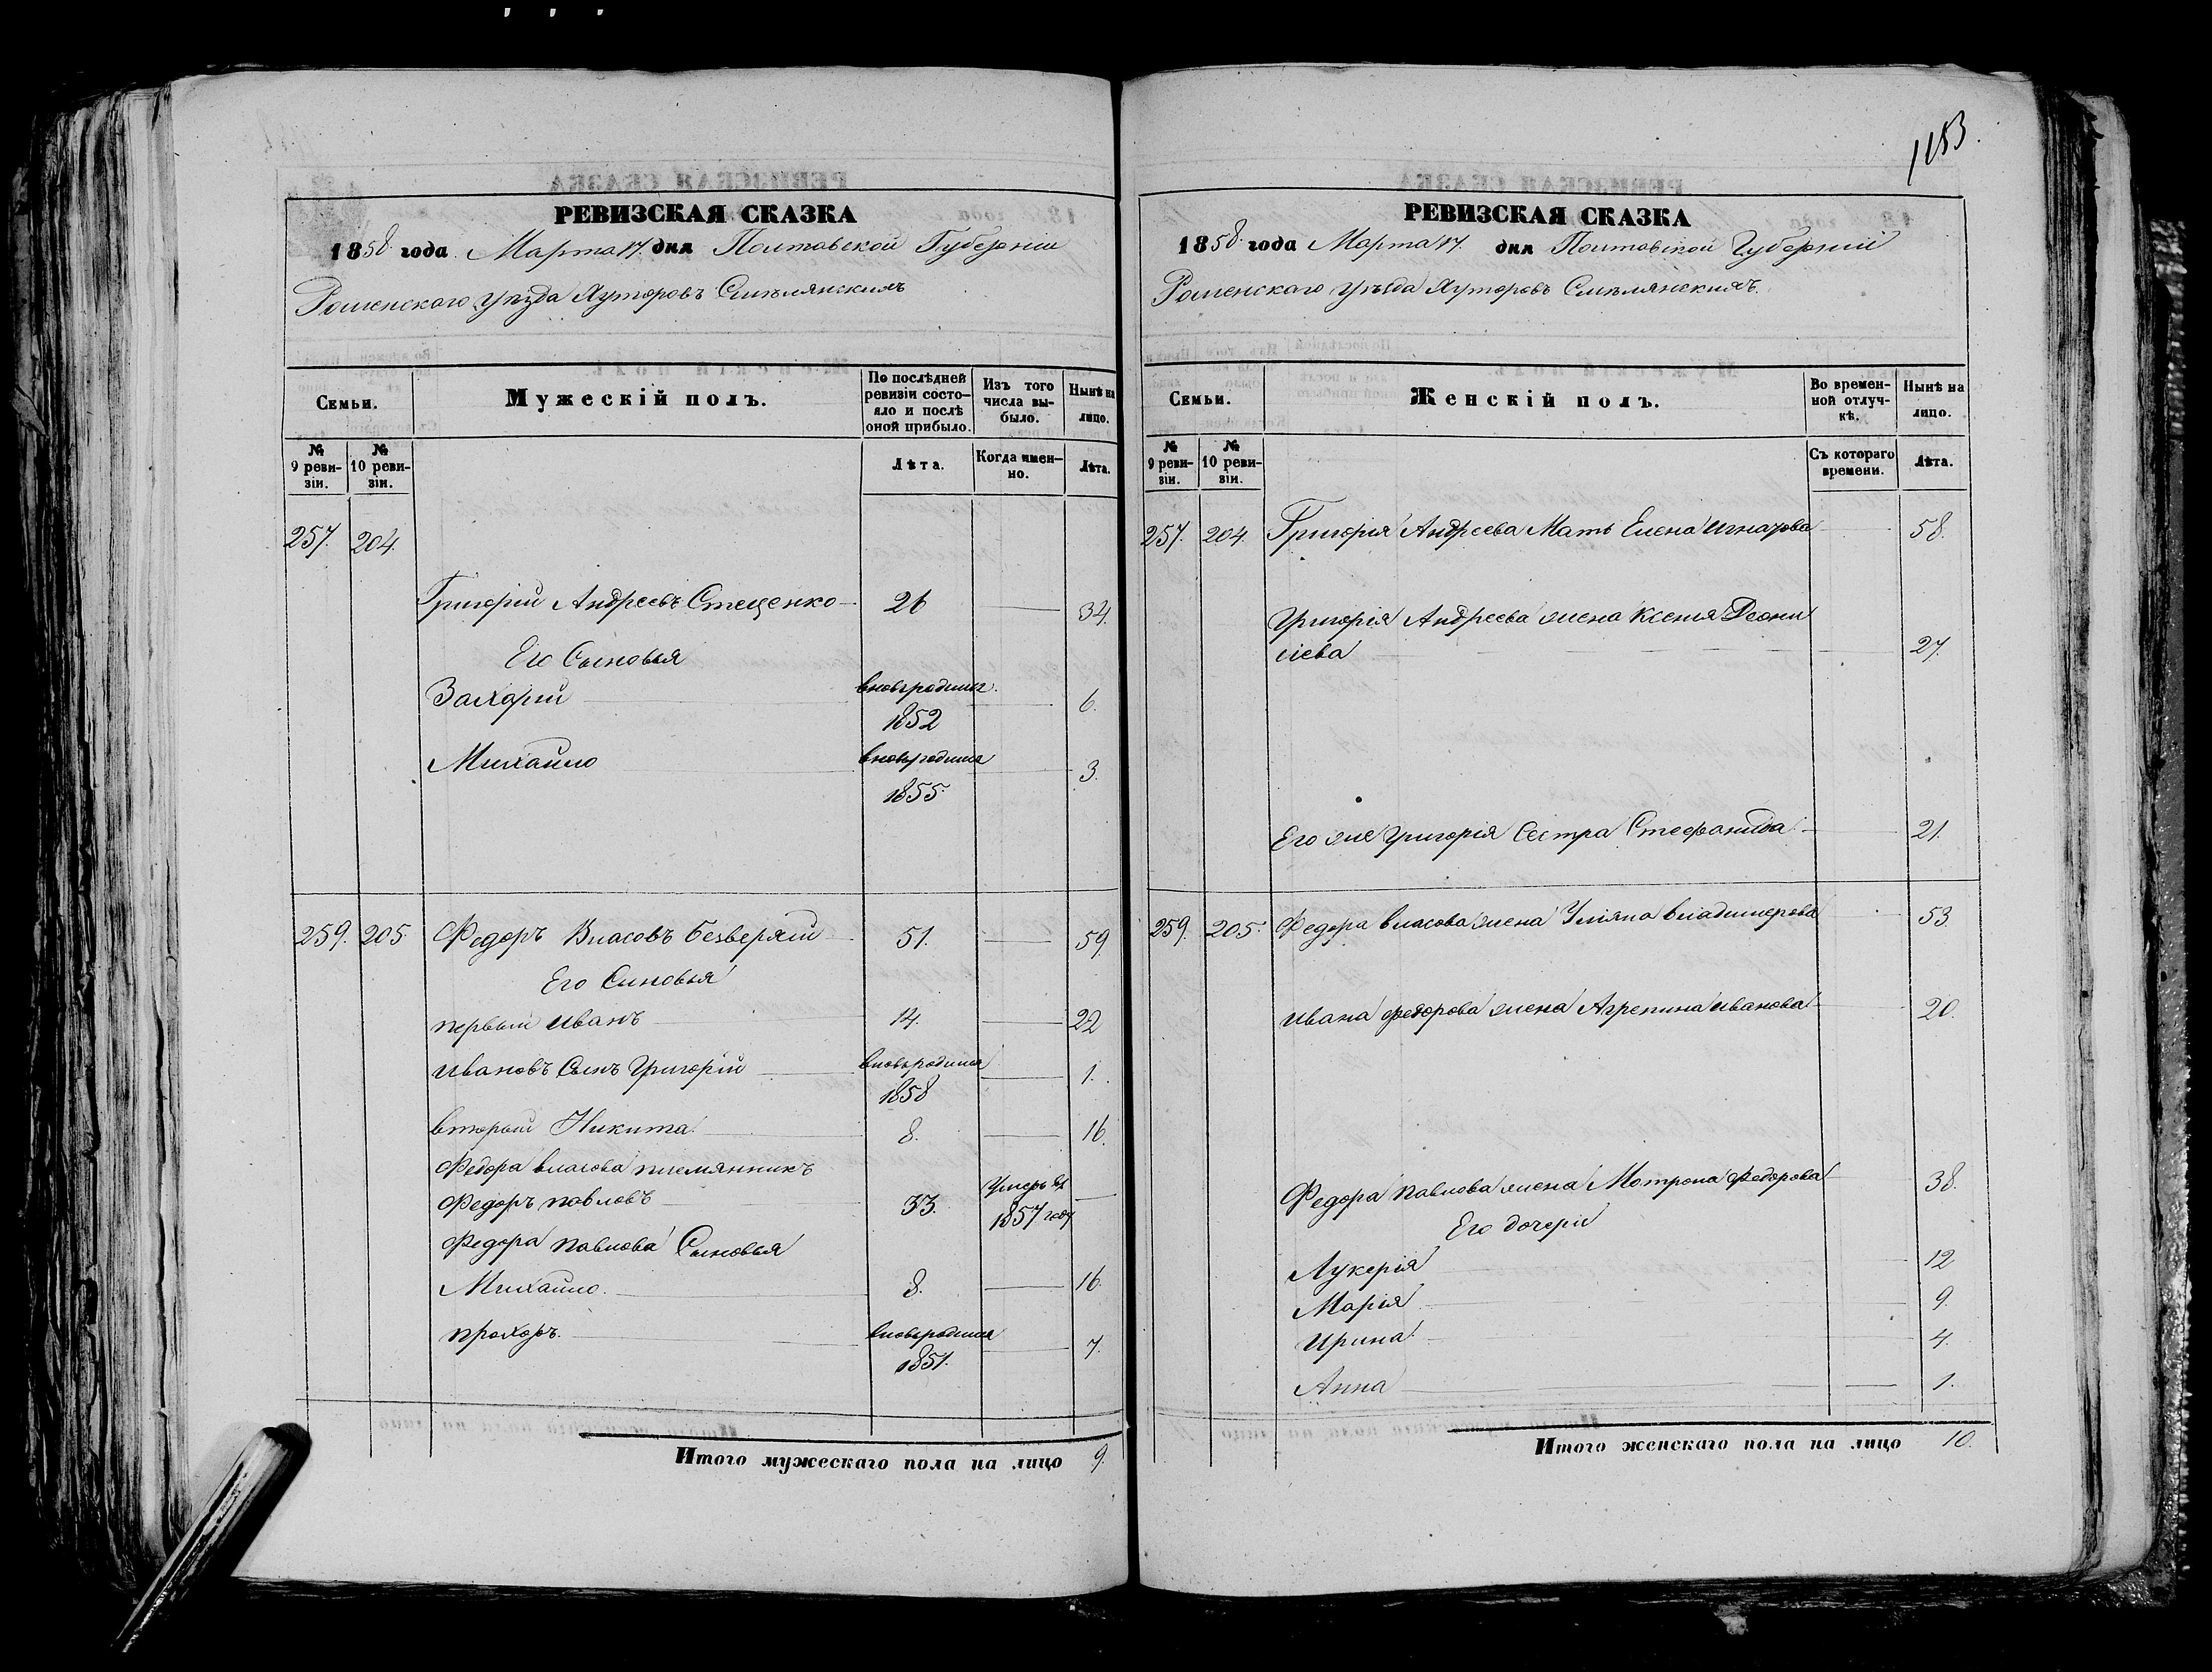 1153.
РЕВИЗСКАЯ СКАЗКА
1858 года Марта 17. дня Полтавской Губерніи
Роменского уѣзда Хуторовъ Смѣлянскихъ
Семьи.
Мужескій полъ.
По послѣдней ревизіи состояло и послѣ оной прибыло.
Изъ того числа выбыло.
Нынѣ на лицо.
№ 9 ревизіи.
№ 10 ревизіи.
Лѣта.
Когда именно.
Лѣта.
257. 204.
Григорій Андреевъ Стеценко 26 34.
Его Сыновья
Захарій вновьродился 1852 6.
Михайло вновьродился 1855. 3.
259. 205 Федоръ Власовъ Безверхій 51. 59
Его Сыновья
первый Иванъ 14. 22
Ивановъ Сынъ Григорій вновьродился 1858 1.
вторый Никита 8. 16.
Федора Власова племянникъ
Федоръ Павловъ 33. Умеръ въ 1857 году
Федора Павлова Сыновья
Михайло. 8. 16.
Прохоръ. вновьродился 1851. 7.
Итого мужескаго пола на лицо 9.
РЕВИЗСКАЯ СКАЗКА
1858 года Марта 17. дня Полтавской Губерніи
Роменского уѣзда Хуторовъ Смѣлянскихъ.
Семьи.
Женскій полъ.
Во временной отлучкѣ.
Нынѣ на лицо.
№ 9 ревизіи.
№ 10 ревизіи.
Съ котораго времени.
Лѣта.
257. 204. Григорія Андреева Мать Елена Игнатова 58.
Григорія Андреева жена Ксенія
27.
Его же Григорія Сестра Стефанида 21.
259. 205. Федора Власова жена Уліяна Владимерова 53.
Ивана Федорова жена Агрепина Иванова 20.
Федора Павлова жена Мотрона Федорова 38.
Его дочери
Лукерія 12
Марія 9.
Ирина 4.
Анна 1.
Итого женскаго пола на лицо 10.